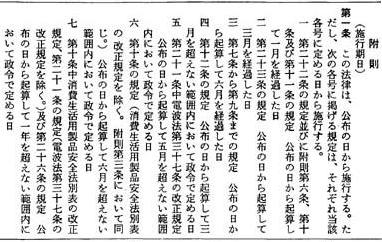 附則
（施行期日）
第一条　この法律は、公布の日から施行する。た
だし、次の各号に掲げる規定は、それぞれ当該
各号に定める日から施行する。
一　第二十二条の規定並びに附則第六条、第十
条及び第十一条の規定　公布の日から起算し
て一月を経過した日
二　第二十三条の規定　公布の日から起算して
三月を経過した日
三　第七条から第九条までの規定　公布の日か
ら起算して六月を経過した日
四　第十二条の規定　公布の日から起算して三
月を超えない範囲内において政令で定める日
五　第二十一条中電波法第三十七条の改正規定
公布の日から起算して五月を超えない範囲
内において政令で定める日
六　第十条の規定（消費生活用製品安全法別表
の改正規定を除く。附則第三条において同
じ。）　公布の日から起算して六月を超えない
範囲内において政令で定める日
七　第十条中消費生活用製品安全法別表の改正
規定、第二十一条の規定（電波法第三十七条の
改正規定を除く。）及び第二十六条の規定　公
布の日から起算して一年を超えない範囲内に
おいて政令で定める日